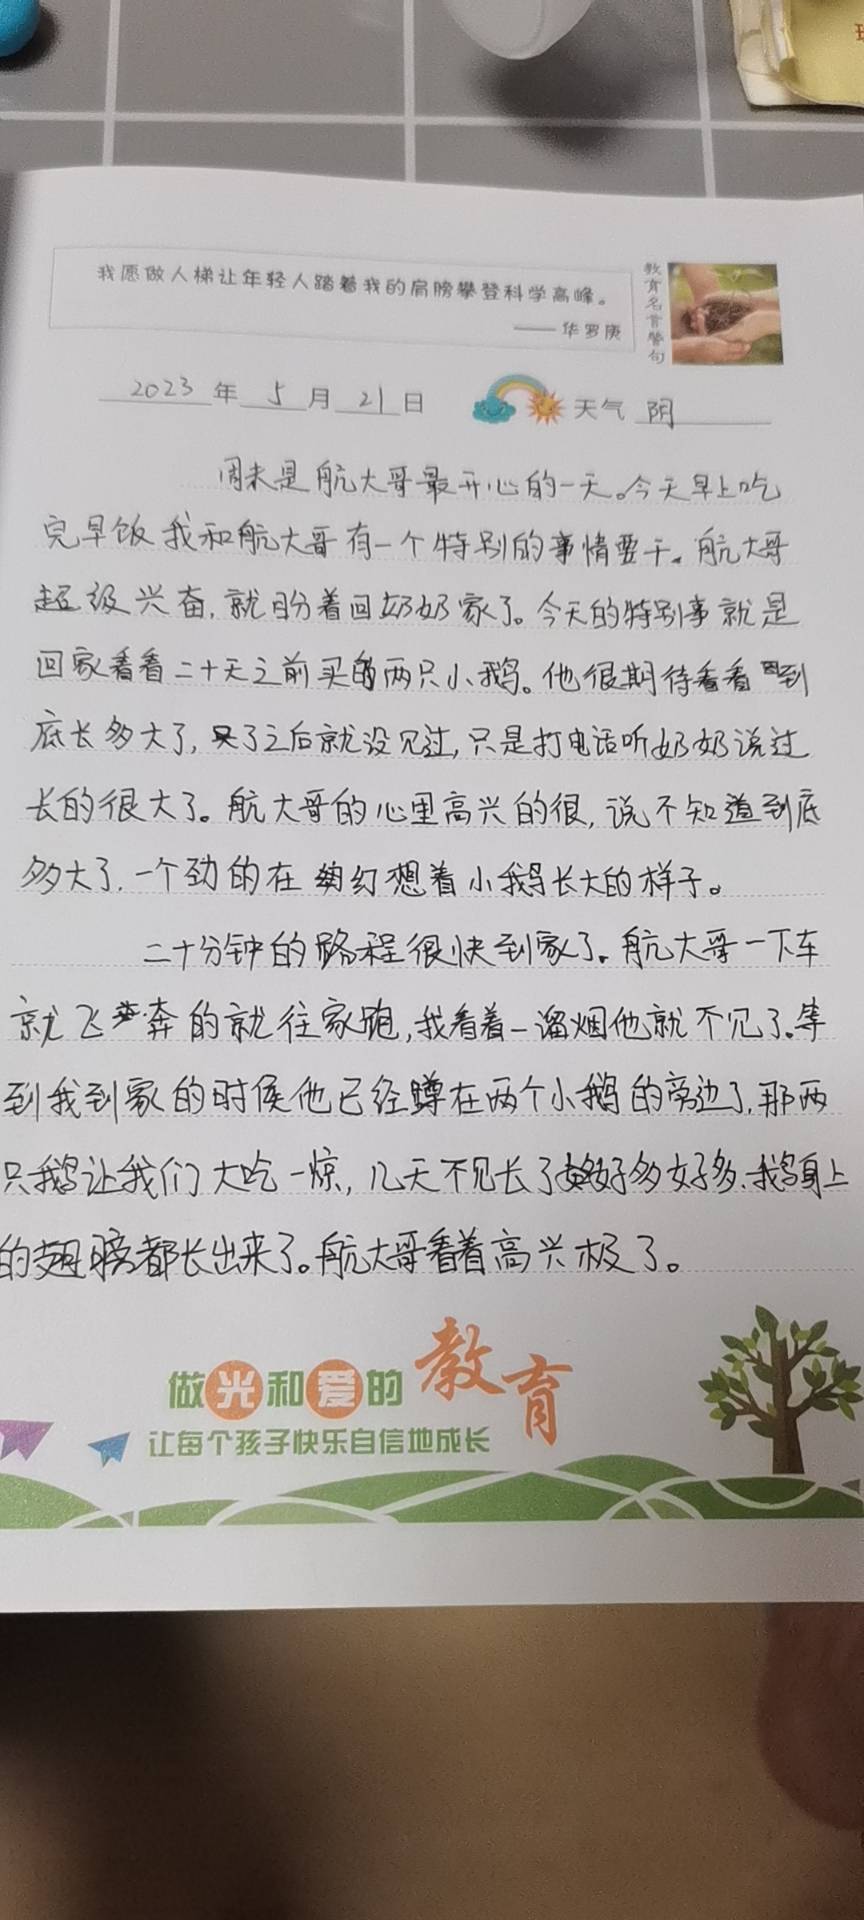 我愿做人梯让年轻人踏着我的肩膀攀登科学高峰。
—— 华罗庚
教育名言警句
2023 年 5 月 21 日 天气 阴
周末是航大哥最开心的一天。今天早上吃
完早饭我和航大哥有一个特别的事情要干。航大哥
超级兴奋,就盼着回奶奶家了。今天的特别事就是
回家看看二十天之前买的两只小鹅。他很期待看看到
底长多大了,买了之后就没见过,只是打电话听奶奶说过
长的很大了。航大哥的心里高兴的很,说不知道到底
多大了,一个劲的在幻想着小鹅长大的样子。
二十分钟的路程很快到家了。航大哥一下车
就飞奔的就往家跑,我看着一溜烟他就不见了。等
到我到家的时候他已经蹲在两个小鹅的旁边了,那两
只鹅让我们大吃一惊,几天不见长了好多好多、鹅身上
的翅膀都长出来了。航大哥看着高兴极了。
做光和爱的教育
让每个孩子快乐自信地成长